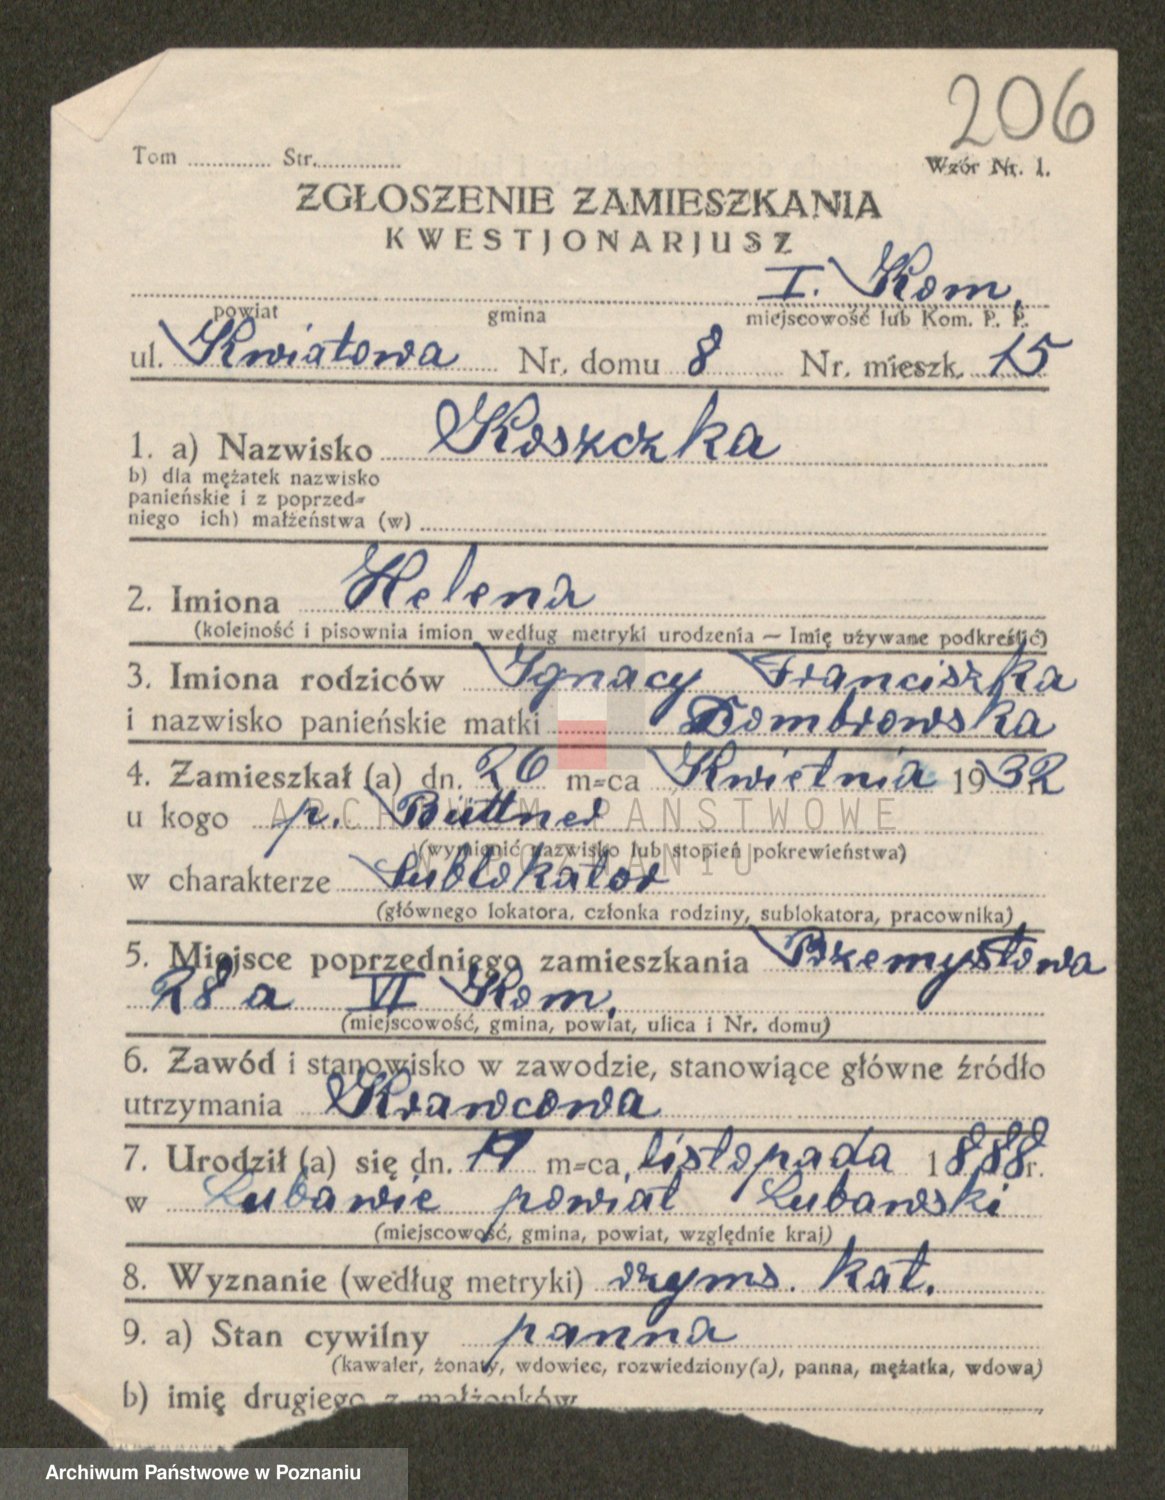 206
Tom ............ Str. ............
Wzór Nr. 1.
ZGŁOSZENIE ZAMIESZKANIA
KWESTJONARJUSZ
I. Kom.
powiat gmina miejscowość lub Kom. P. P.
ul. Kwiatowa Nr. domu 8 Nr. mieszk. 15
1. a) Nazwisko Koszczka
b) dla mężatek nazwisko
panieńskie i z poprzed=
niego (ich) małżeństwa (w)
2. Imiona Helena
(kolejność i pisownia imion według metryki urodzenia — Imię używane podkreślić)
3. Imiona rodziców Ignacy Franciszka
i nazwisko panieńskie matki Dombrowska
4. Zamieszkał (a) dn. 26 m=ca Kwietnia 1932
u kogo p. Büttner
(wymienić nazwisko lub stopień pokrewieństwa)
w charakterze Sublokator
(głównego lokatora, członka rodziny, sublokatora, pracownika)
5. Miejsce poprzedniego zamieszkania Przemysłowa
28a VI Kom.
(miejscowość, gmina, powiat, ulica i Nr. domu)
6. Zawód i stanowisko w zawodzie, stanowiące główne źródło
utrzymania Krawcowa
7. Urodził (a) się dn. m=ca listopada 1888 r.
w Lubawie powiat Lubawski
(miejscowość, gmina, powiat, względnie kraj)
8. Wyznanie (według metryki) rzyms. kat.
9. a) Stan cywilny panna
(kawaler, żonaty, wdowiec, rozwiedziony(a), panna, mężatka, wdowa)
b) imię drugiego z małżonków
ARCHIWUM PAŃSTWOWE
W POZNANIU
Archiwum Państwowe w Poznaniu